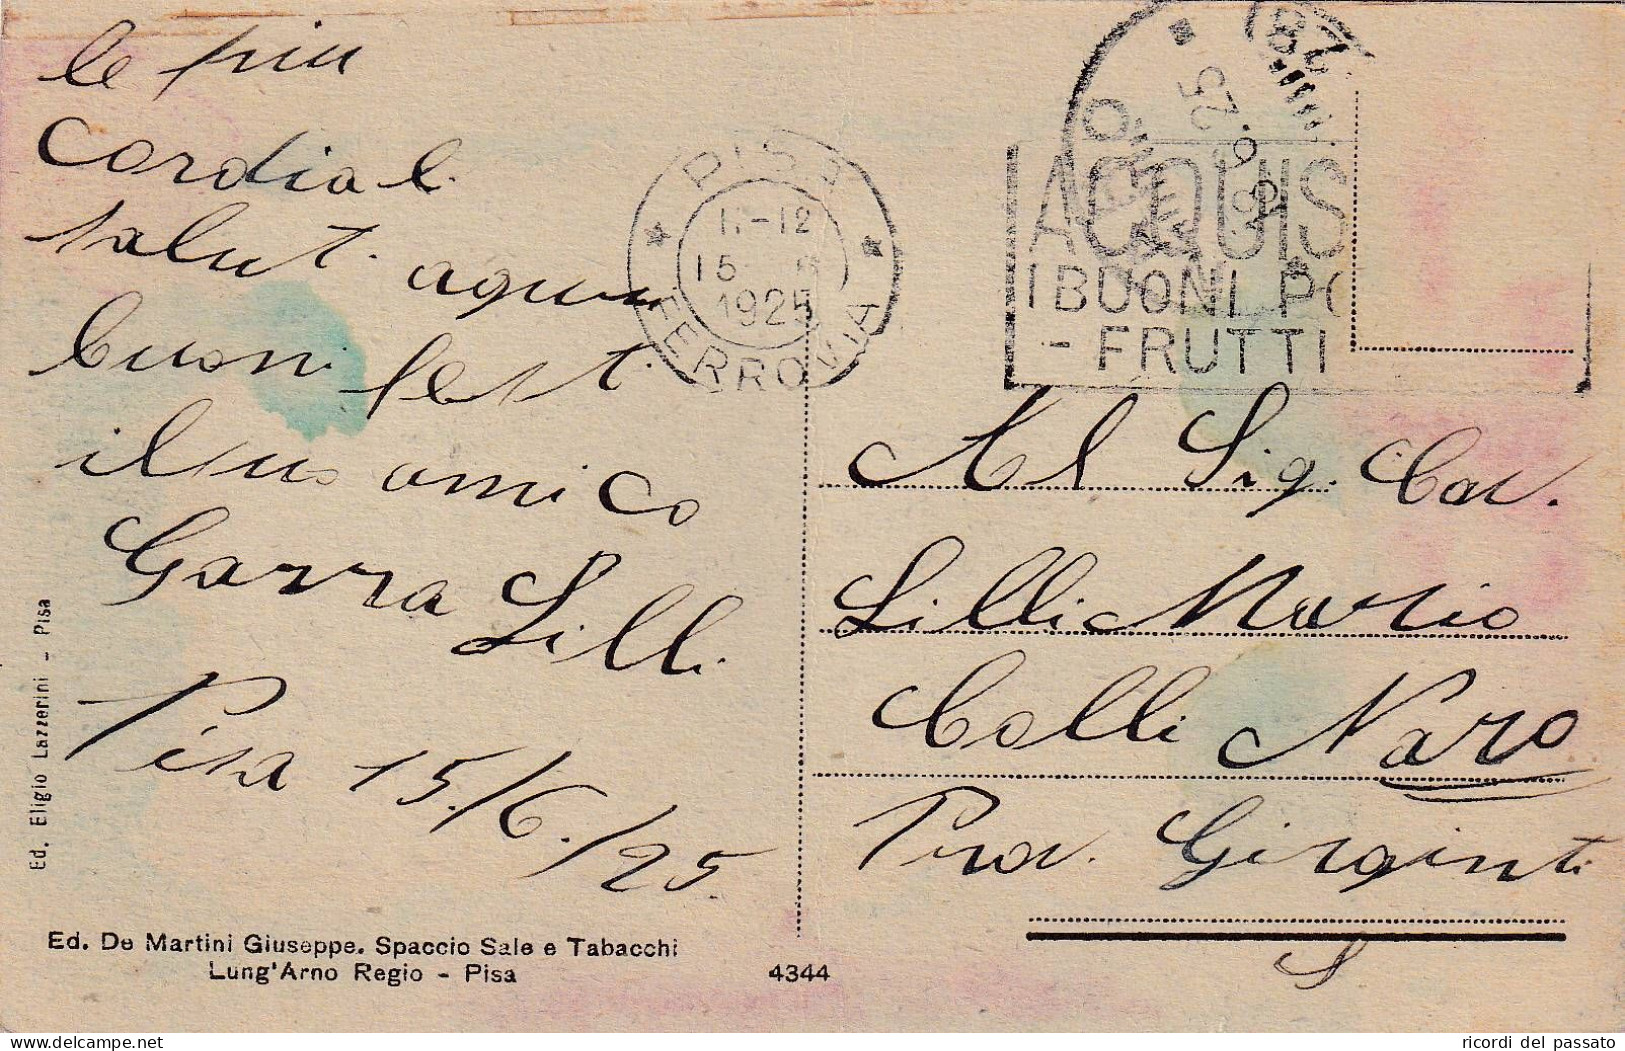 le più
Cordiali
saluti
buoni festi
il suo amico
Garra Lilli
Pisa 15/6./25
Ed. Eligio Lazzerini - Pisa
Ed. De Martini Giuseppe. Spaccio Sale e Tabacchi
Lung'Arno Regio - Pisa
4344
PISA
11-12
15 6
1925
FERROVIA
ACQUIS
I BUONI PO
- FRUTTI
Al Sig. Cav.
Lilli Mario
Colli Naro
Prov. Girginti
ricordi del passato